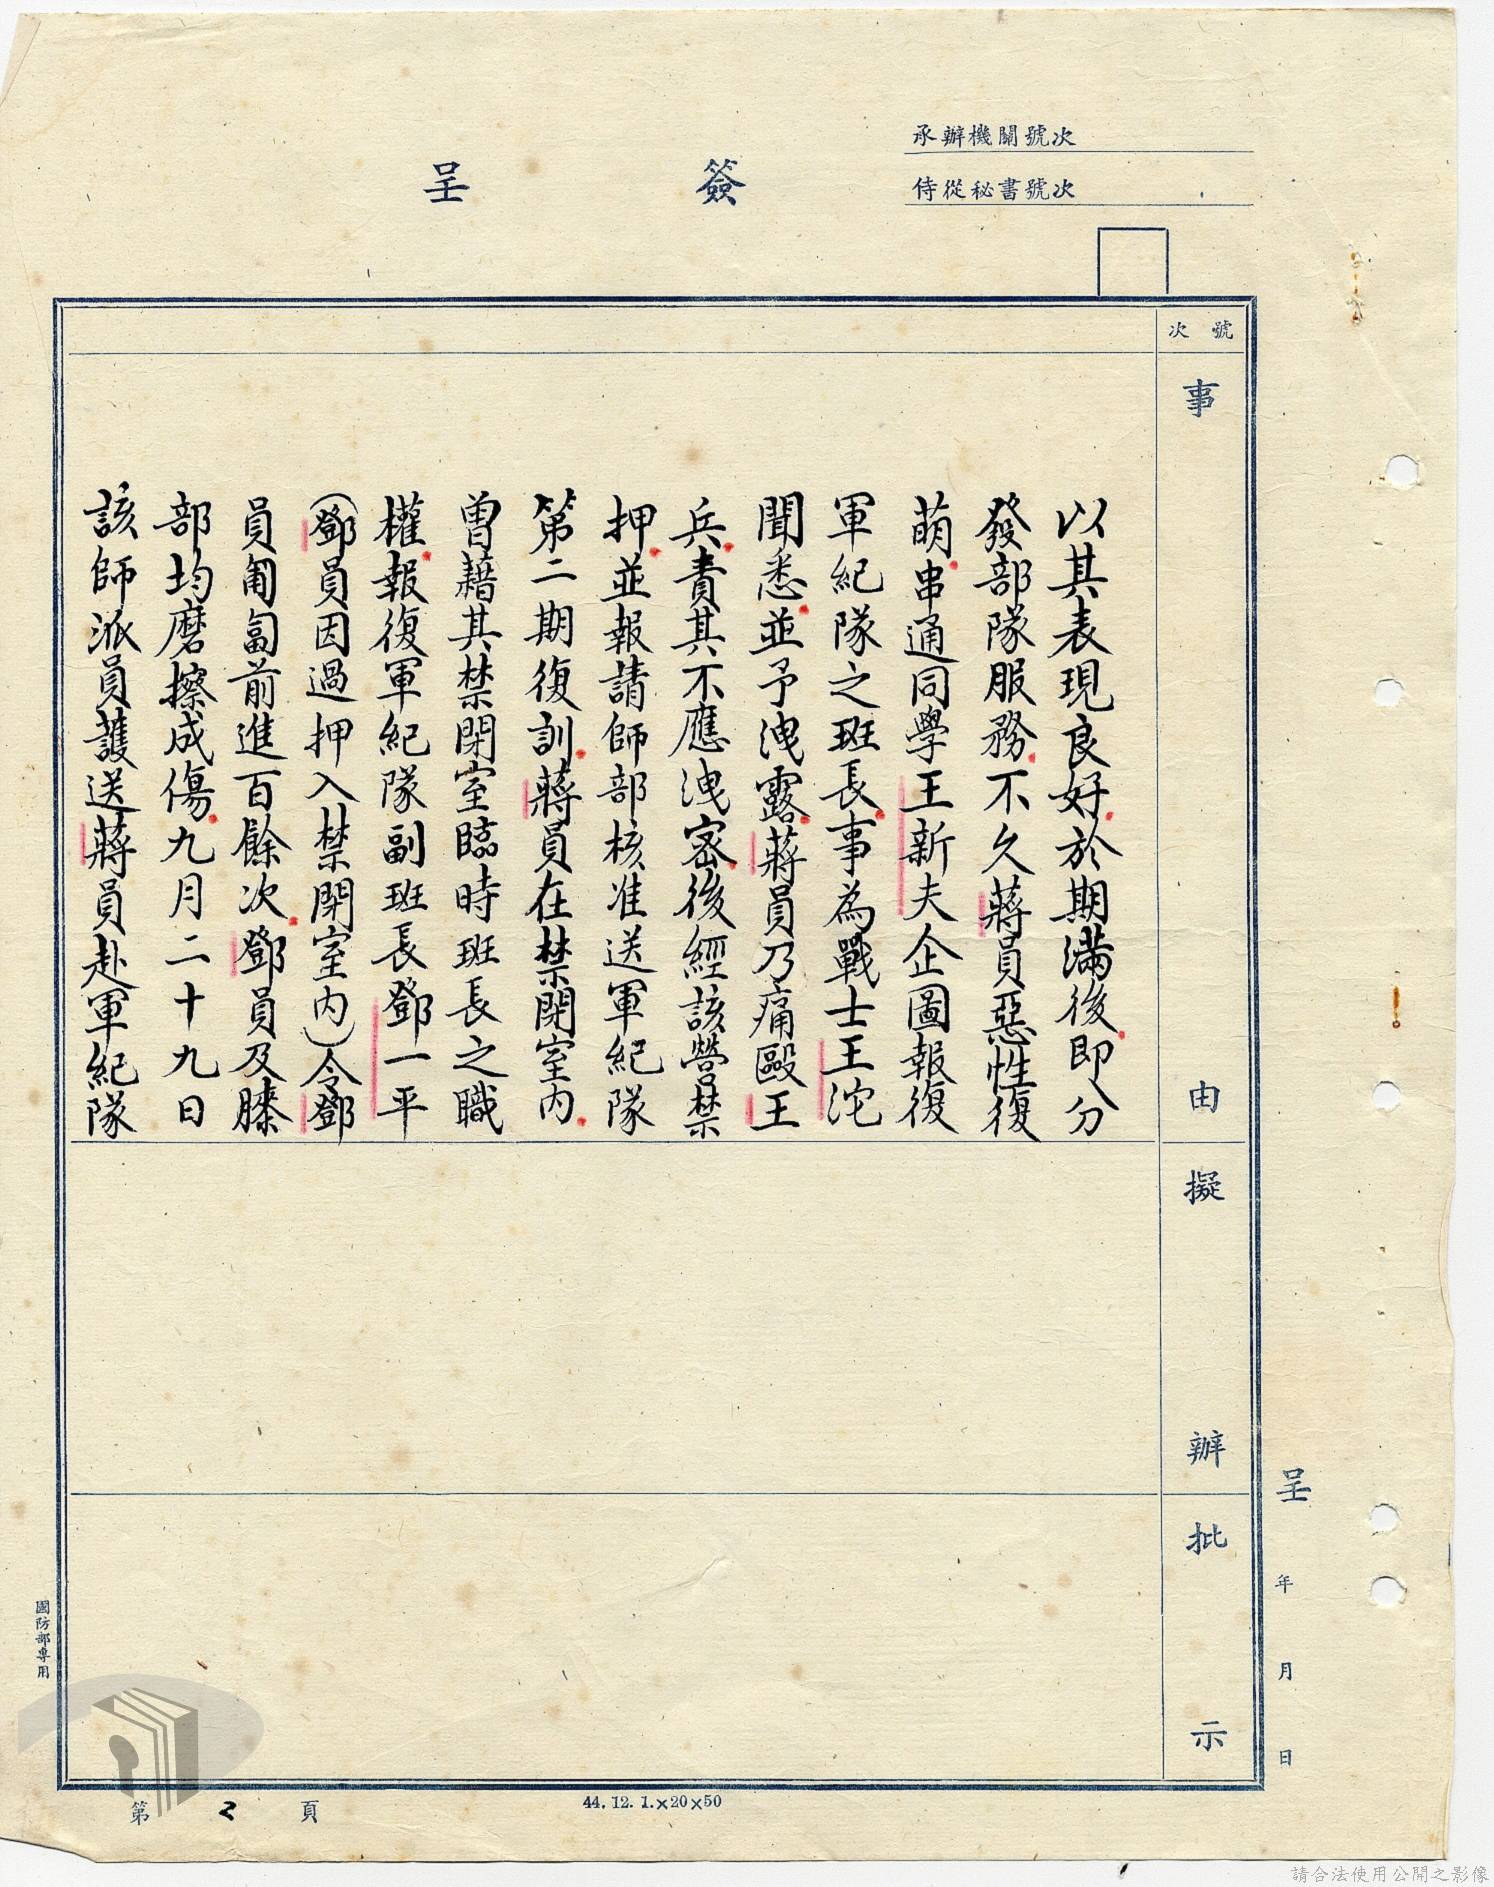 承辦機關號次
侍從秘書號次
簽呈
號次
事由
擬辦
批示
以其表現良好於期滿後即分
發部隊服務不久蔣員惡性復
萌串通同學王新夫企圖報復
軍紀隊之班長事為戰士王沱
聞悉並予洩露蔣員乃痛毆王
兵責其不應洩密後經該營禁
押並報請師部核准送軍紀隊
第二期復訓蔣員在禁閉室內
曾藉其禁閉室臨時班長之職
權報復軍紀隊副班長鄧一平
(鄧員因過押入禁閉室內)令鄧
員匍匐前進百餘次鄧員及膝
部均磨擦成傷九月二十九日
該師派員護送蔣員赴軍紀隊
呈 年 月 日
國防部專用
第2頁
44.12.1.×20×50
請合法使用公開之影像